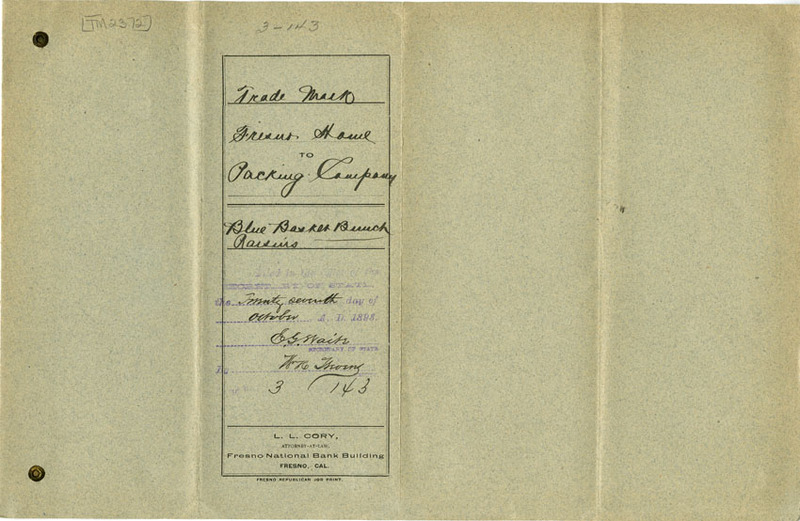 [TM2372]
3-143
Trade Mark
Fresno Home
TO
Packing Company
Blue Basket Bunch
Raisins
Filed in the office of the
SECRETARY OF STATE
the Twenty seventh day of
October A. D. 1898.
E. G. Waite
SECRETARY OF STATE
By W. H. Thorny
3 143
L. L. CORY,
ATTORNEY-AT-LAW,
Fresno National Bank Building
FRESNO, CAL.
FRESNO REPUBLICAN JOB PRINT.